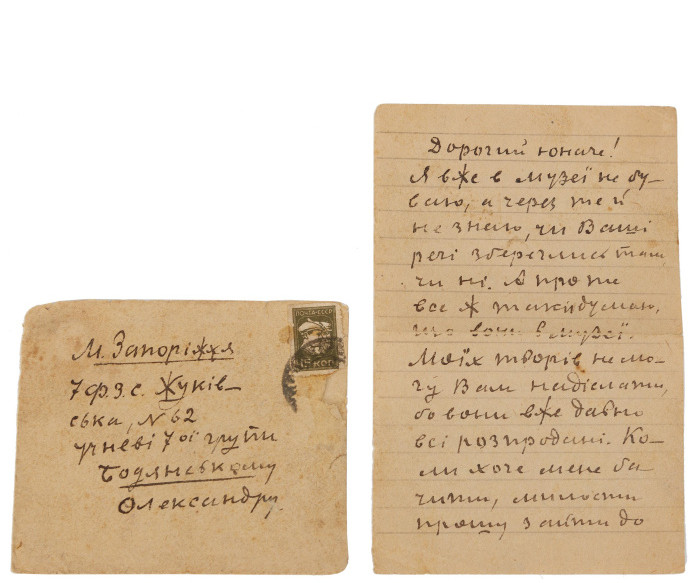 м. Запоріжжя
7 Ф.З.С. Жуків–
ська, N 62
учневі 7ої групи
Бодянському
Олександру
ПОЧТА-СССР
15 КОП
Дорогий юначе!
Я вже в музеї не бу–
ваю, а через те й
не знаю, чи Ваші
речі збереглись там,
чи ні. А проте
все ж таки думаю,
що вони в музеї.
Моїх творів не мо–
гу Вам надіслати,
бо вони вже давно
всі розпродані. Ко–
ли хоче мене ба–
чити, милости
прошу зайти до